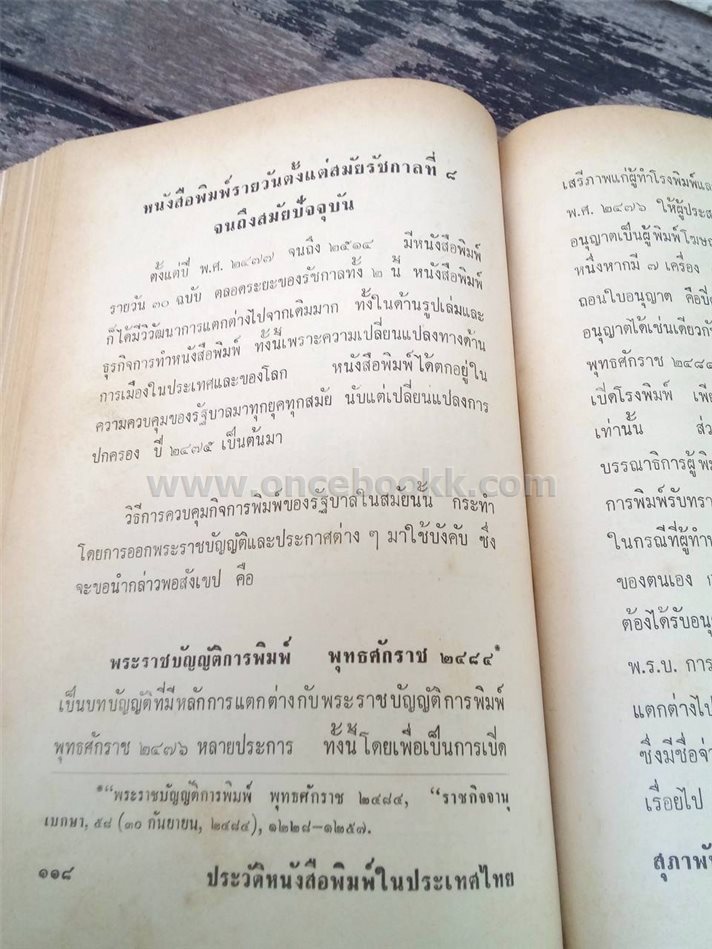 หนังสือพิมพ์รายวันตั้งแต่สมัยรัชกาลที่ ๘
จนถึงสมัยปัจจุบัน
ตั้งแต่ปี พ.ศ. ๒๔๗๗ จนถึง ๒๕๑๔ มีหนังสือพิมพ์
รายวัน ๓๐ ฉบับ ตลอดระยะของรัชกาลทั้ง ๒ นี้ หนังสือพิมพ์
ก็ได้มีวิวัฒนาการแตกต่างไปจากเดิมมาก ทั้งในด้านรูปเล่มและ
ธุรกิจการทำหนังสือพิมพ์ ทั้งนี้เพราะความเปลี่ยนแปลงทางด้าน
การเมืองในประเทศและของโลก หนังสือพิมพ์ได้ตกอยู่ใน
ความควบคุมของรัฐบาลมาทุกยุคทุกสมัย นับแต่เปลี่ยนแปลงการ
ปกครอง ปี ๒๔๗๕ เป็นต้นมา
www.oncebookk.com
วิธีการควบคุมกิจการพิมพ์ของรัฐบาลในสมัยนั้น กระทำ
โดยการออกพระราชบัญญัติและประกาศต่าง ๆ มาใช้บังคับ ซึ่ง
จะขอนำกล่าวพอสังเขป คือ
พระราชบัญญัติการพิมพ์ พุทธศักราช ๒๔๘๔*
เป็นบทบัญญัติที่มีหลักการแตกต่างกับพระราชบัญญัติการพิมพ์
พุทธศักราช ๒๔๗๖ หลายประการ ทั้งนี้ โดยเพื่อเป็นการเปิด
*“พระราชบัญญัติการพิมพ์ พุทธศักราช ๒๔๘๔, “ราชกิจจานุ
เบกษา, ๕๘ (๓๐ กันยายน, ๒๔๘๔), ๑๒๒๘–๑๒๕๗.
๑๑๘ ประวัติหนังสือพิมพ์ในประเทศไทย
เสรีภาพแก่ผู้ทำโรงพิมพ์และ
พ.ศ. ๒๔๗๖ ให้ผู้ประส
อนุญาตเป็นผู้พิมพ์โฆษณ
หนึ่งหากมี ๗ เครื่อง
ถอนใบอนุญาต คือปี
อนุญาตได้เช่นเดียวกั
พุทธศักราช ๒๔๘๔
เปิดโรงพิมพ์ เพีย
เท่านั้น ส่ว
บรรณาธิการผู้พิม
การพิมพ์รับทรา
ในกรณีที่ผู้ทำห
ของตนเอง ก
ต้องได้รับอนุ
พ.ร.บ. การ
แตกต่างไป
ซึ่งมีชื่อจ่า
เรื่อยไป
สุภาพัน